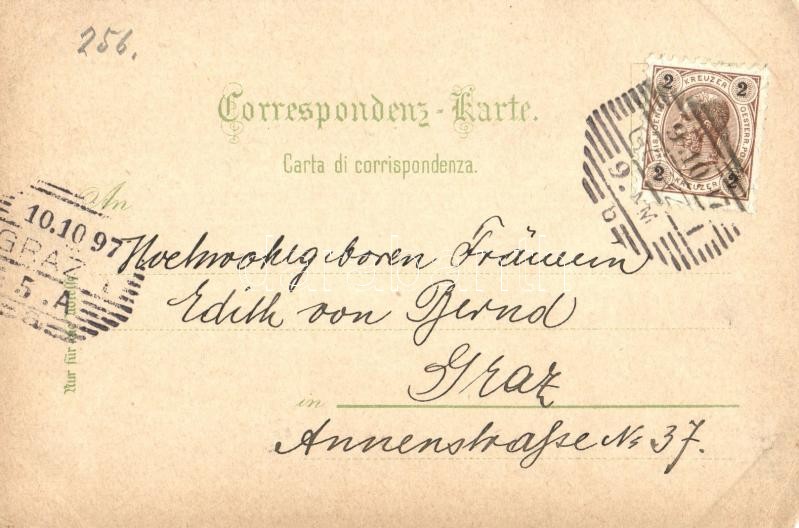 256.
Correspondenz-Karte.
Carta di corrispondenza.
2 KREUZER 2
2 KREUZER 2
9.10
9. A.M.
An
10.10 97
GRAZ 1
5. A
a
Hochwohlgeboren Fräulein
Edith von Bernd
in Graz
Annenstraße No 37.
Nur für die Adresse